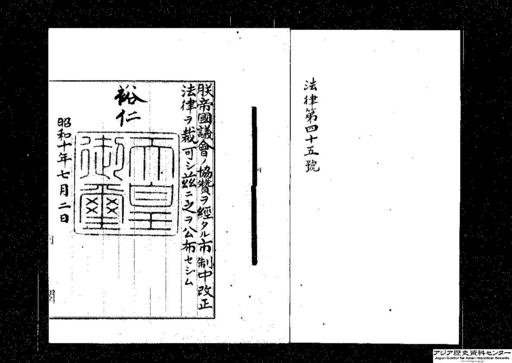 法律第四十五號
朕帝國議會ノ協贊ヲ經タル市制中改正
法律ヲ裁可シ茲ニ之ヲ公布セシム
裕仁
天皇
御璽
昭和十年七月二日
アジア歴史資料センター
Japan Center for Asian Historical Records